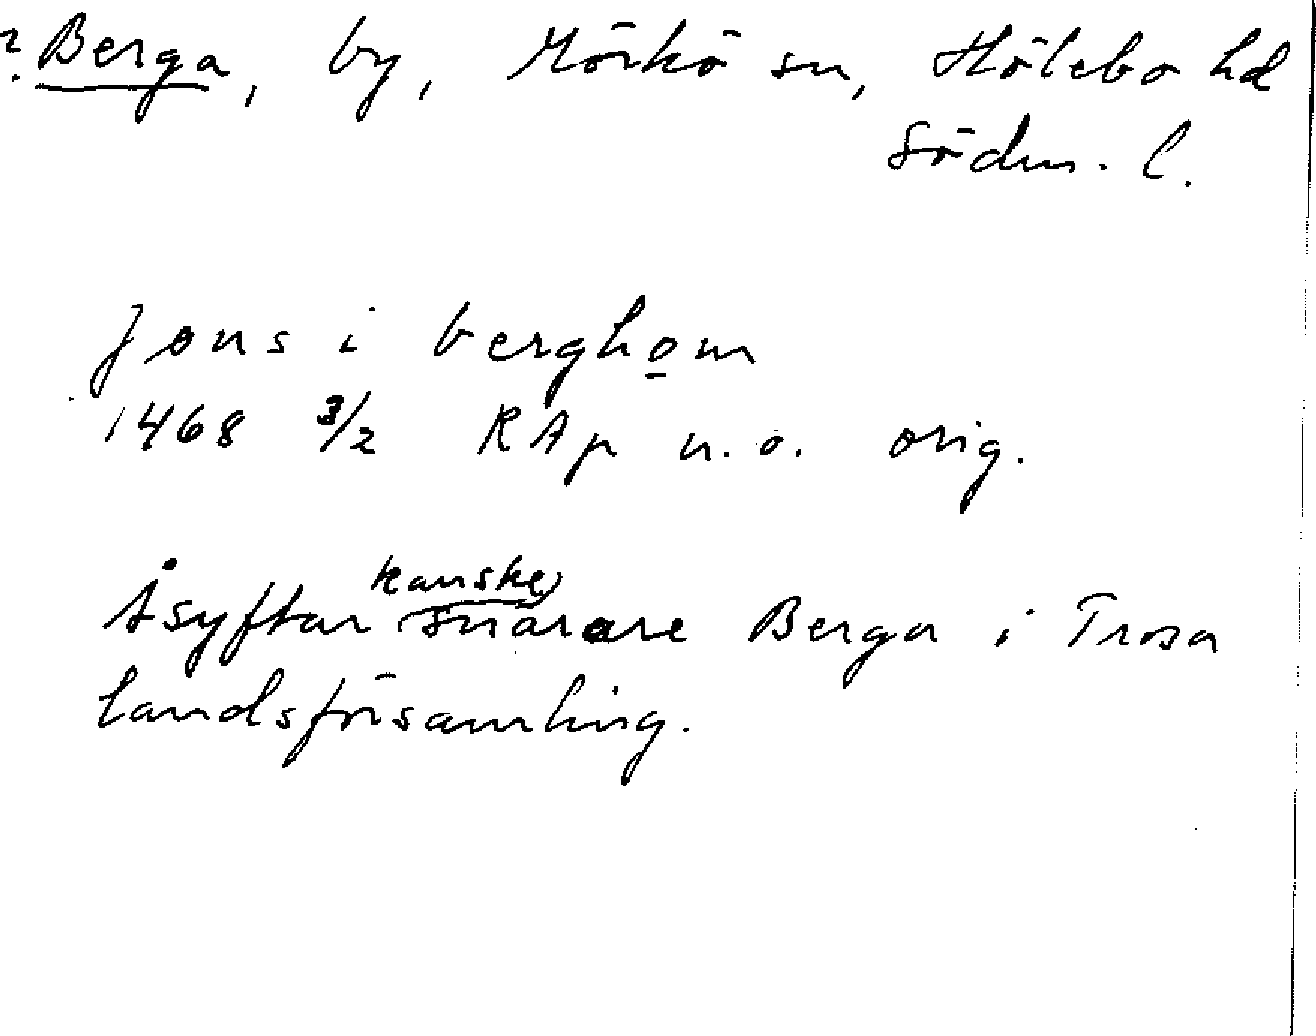 ? Berga, by, Mörkö sn, Hölebo hd
Södm. l.
Jöns i berghom
1468 3/2 RAp n.o. orig.
kanske
Åsyftar snarare Berga i Trosa
landsförsamling.